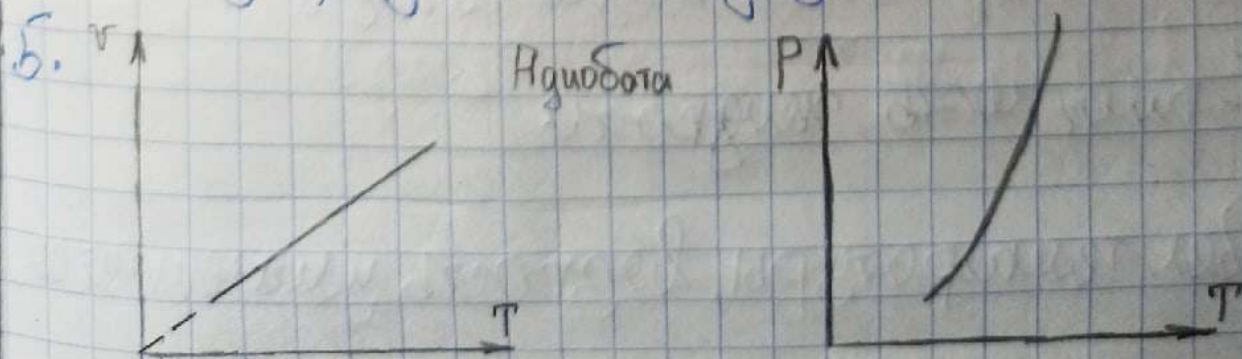 5.
V
T
Адиабата
P
T